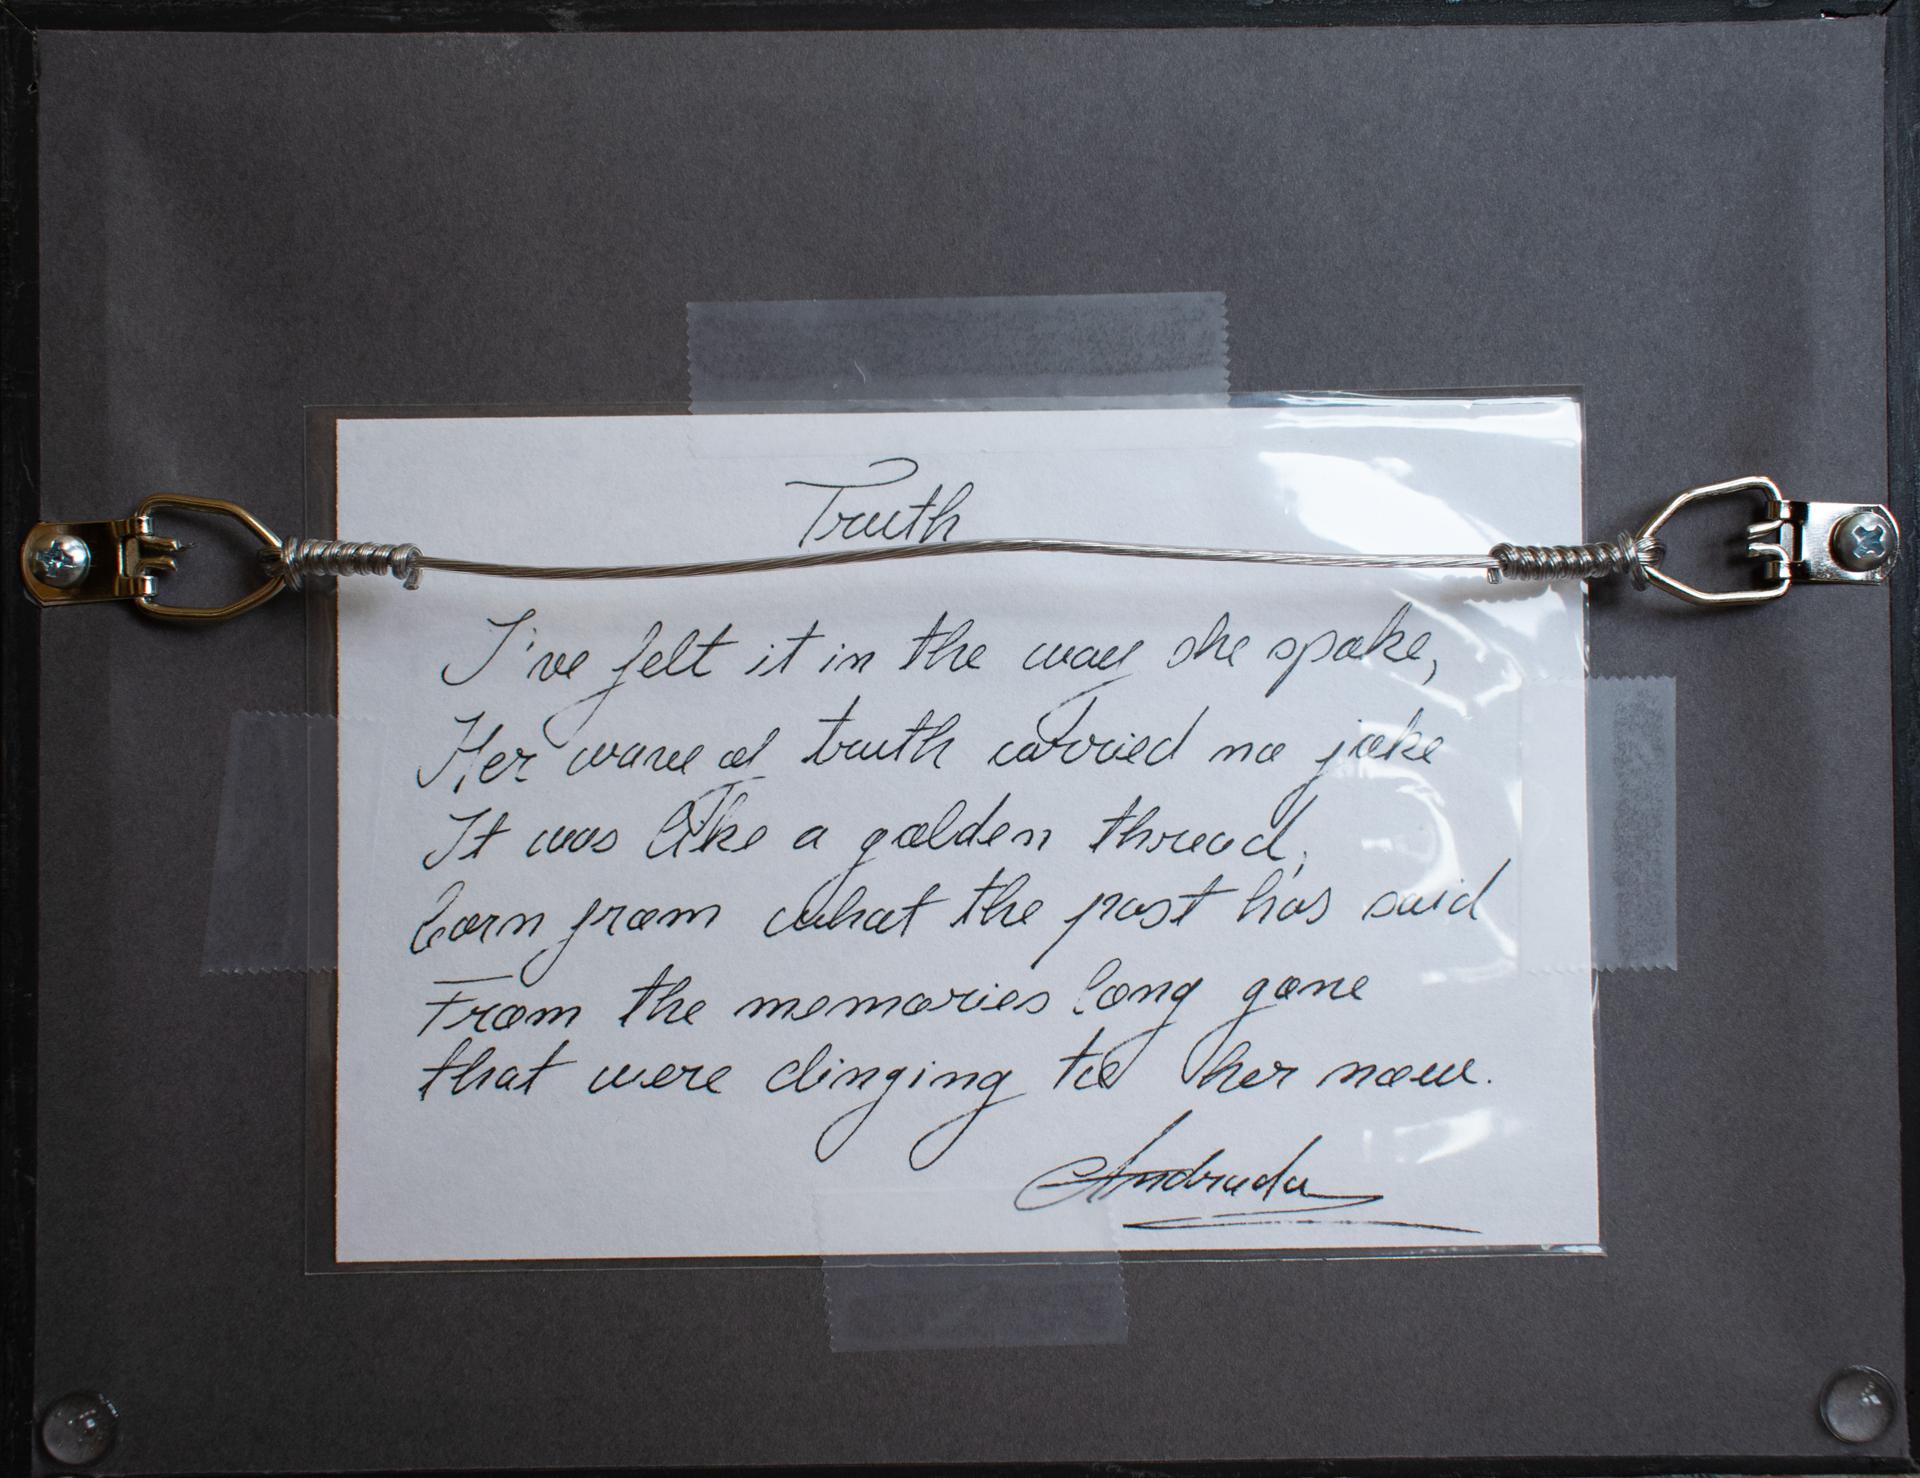 Truth
I've felt it in the way she spoke,
Her wave of truth carried no joke
It was like a golden thread,
born from what the past has said
From the memories long gone
that were clinging to her now.
Andrada